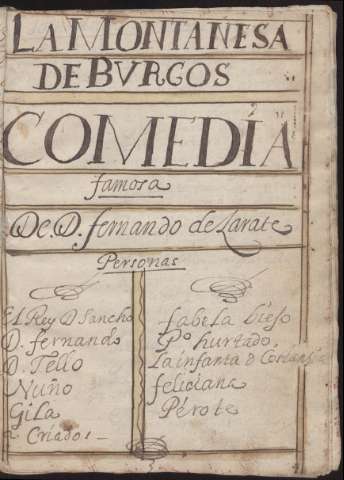 LA MONTAÑESA
DE BVRGOS
COMEDIA
famosa
De. D. fernando de Zarate
Personas
El Rey D. Sancho
D. fernando
D. Tello
Nuño
Gila
Criados
fabela
Po hurtado
La infanta
feliciana
Pérote